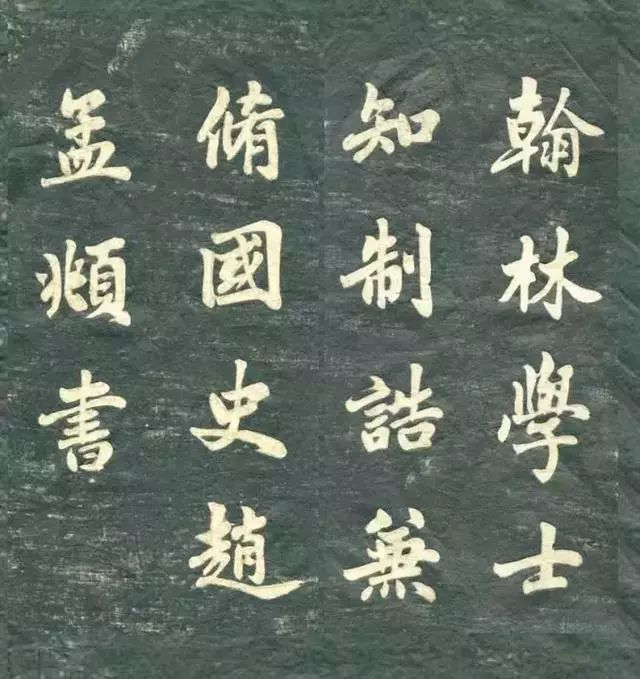 翰林學士
知制誥兼
脩國史趙
孟頫書